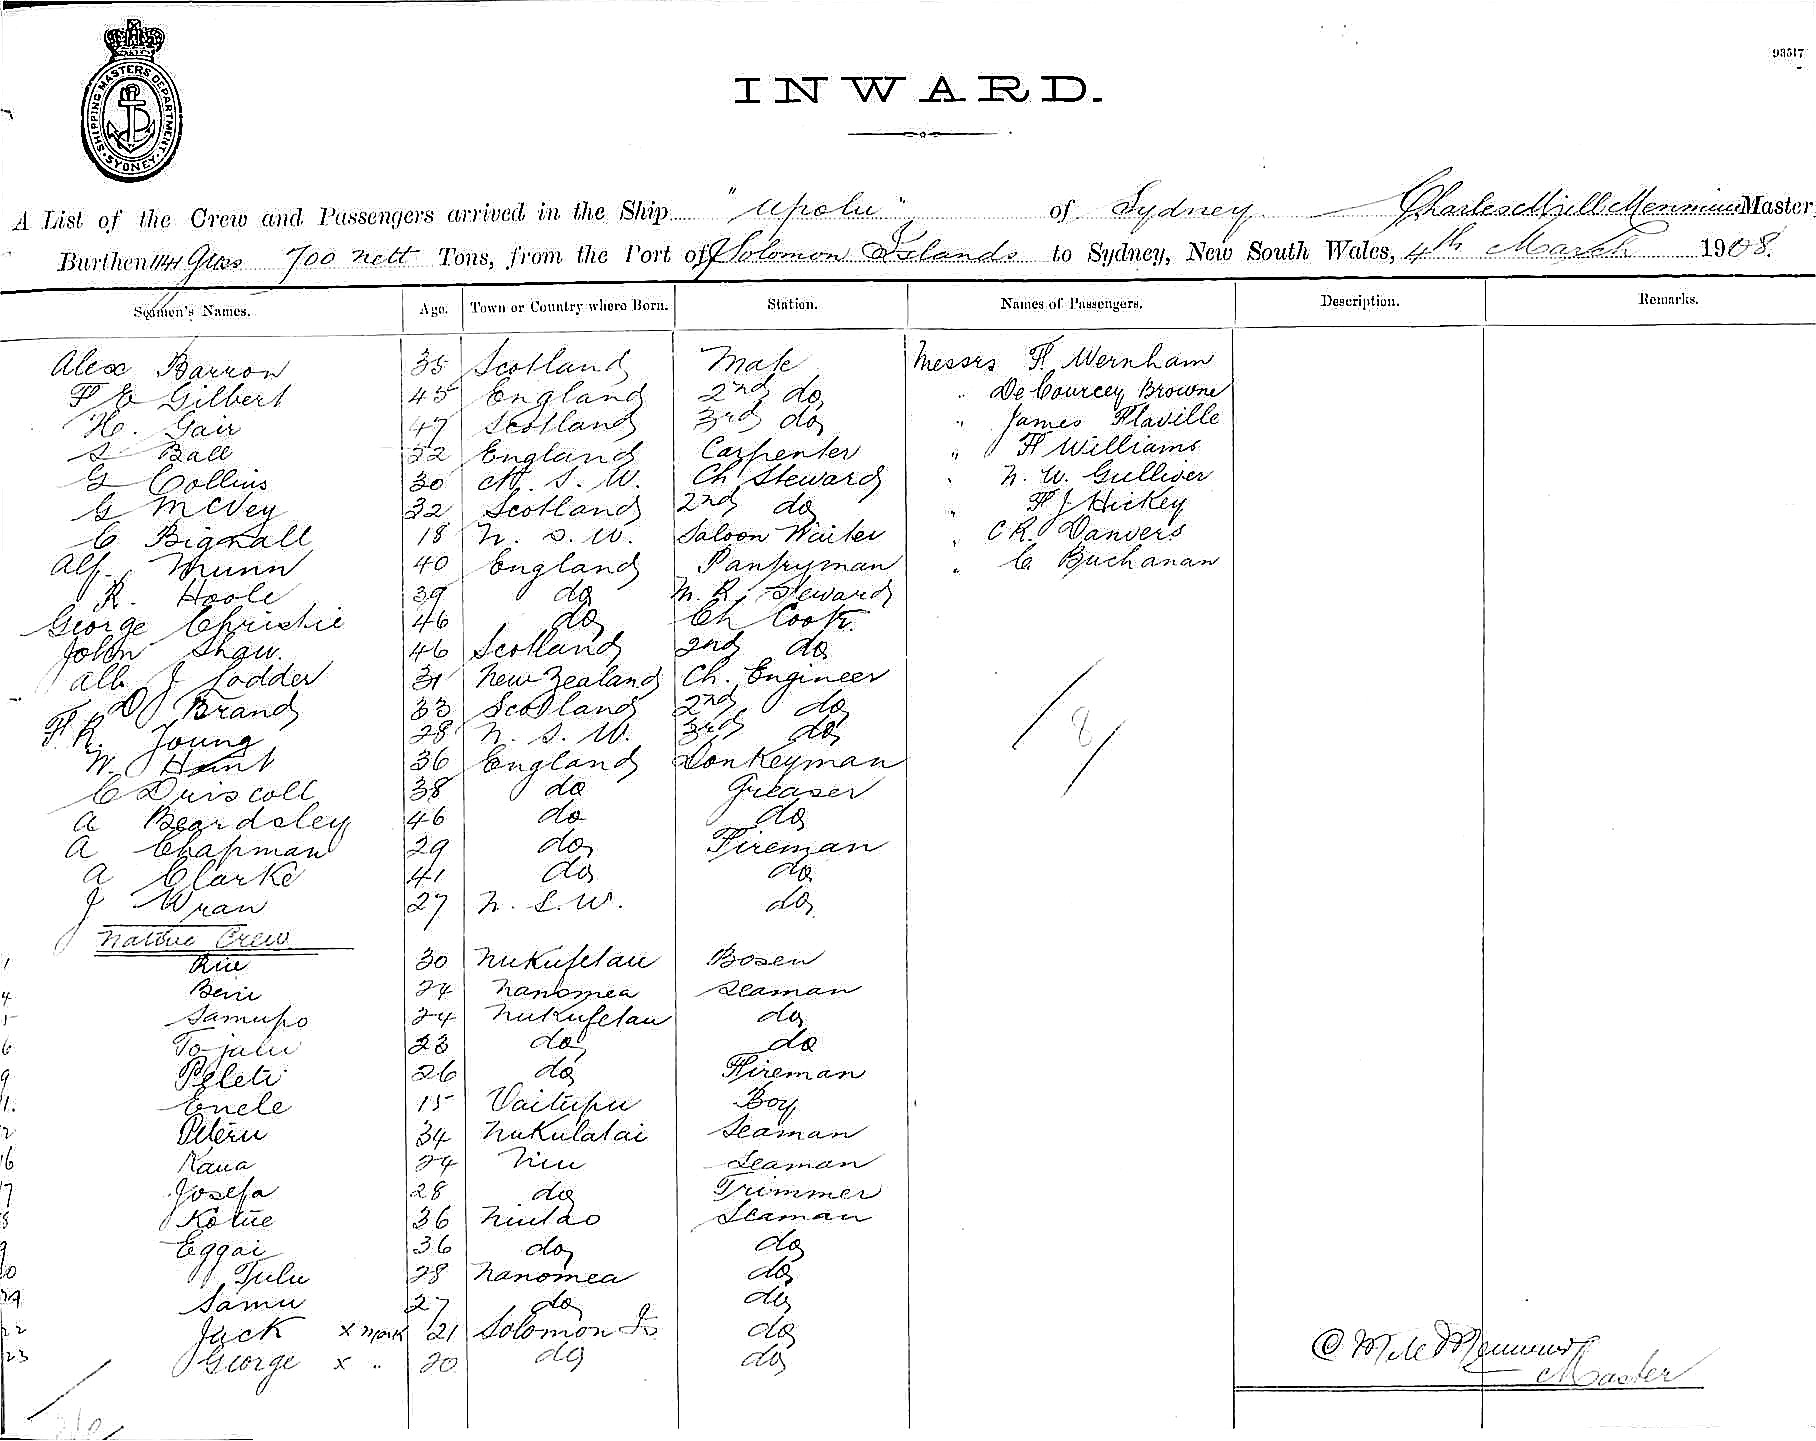 SHIPPING MASTERS DEPARTMENT · SYDNEY ·
93517
INWARD.
A List of the Crew and Passengers arrived in the Ship "Upolu" of Sydney Charles Master,
Burthen 1141 Gross 700 nett Tons, from the Port of Solomon Islands to Sydney, New South Wales, 4th March 1908.
Seamen's Names. Age. Town or Country where Born. Station. Names of Passengers. Description. Remarks.
Alex Barron 35 Scotland Mate Messrs F. Wernham
F E Gilbert 45 England 2nd do " De Courcey Browne
H. Gair 47 Scotland 3rd do " James Flaville
S Ball 32 England Carpenter " F Williams
G Collins 30 N. S. W. Ch Steward " N. W. Gulliver
G McVey 32 Scotland 2nd do " F J Hickey
C Bignall 18 N. S. W. Saloon Waiter " C R. Danvers
Alf. Munn 40 England Pantryman " C. Buchanan
R. Hoole 39 do M. R. Steward
George Christie 46 do Ch Cook.
John Shaw. 46 Scotland 2nd do
Alb J Lodder 31 New Zealand Ch. Engineer
D Brand 33 Scotland 2nd do
F. R. Young 28 N. S. W. 3rd do
W. Hunt 36 England Donkeyman
C Driscoll 38 do Greaser
A Beardsley 46 do do
A Chapman 29 do Fireman
A Clarke 41 do do
J Wran 27 N. S. W. do
/ 8 /
Native Crew
1 30 Nukufetau Bosen
4 Beni 24 Nanomea Seaman
5 Samupo 24 Nukufetau do
6 23 do do
9 Peleti 26 do Fireman
1. Enele 15 Vaitupu Boy
2 Peteru 34 Nukulalai Seaman
16 Kaua 24 Niu Seaman
7 Josefa 28 do Trimmer
8 Kotue 36 Niutao Seaman
9 Eggai 36 do do
20 Tulu 28 Nanomea do
Samu 27 do do
22 Jack x mark 21 Solomon Is do
23 George x " 20 do do
Master